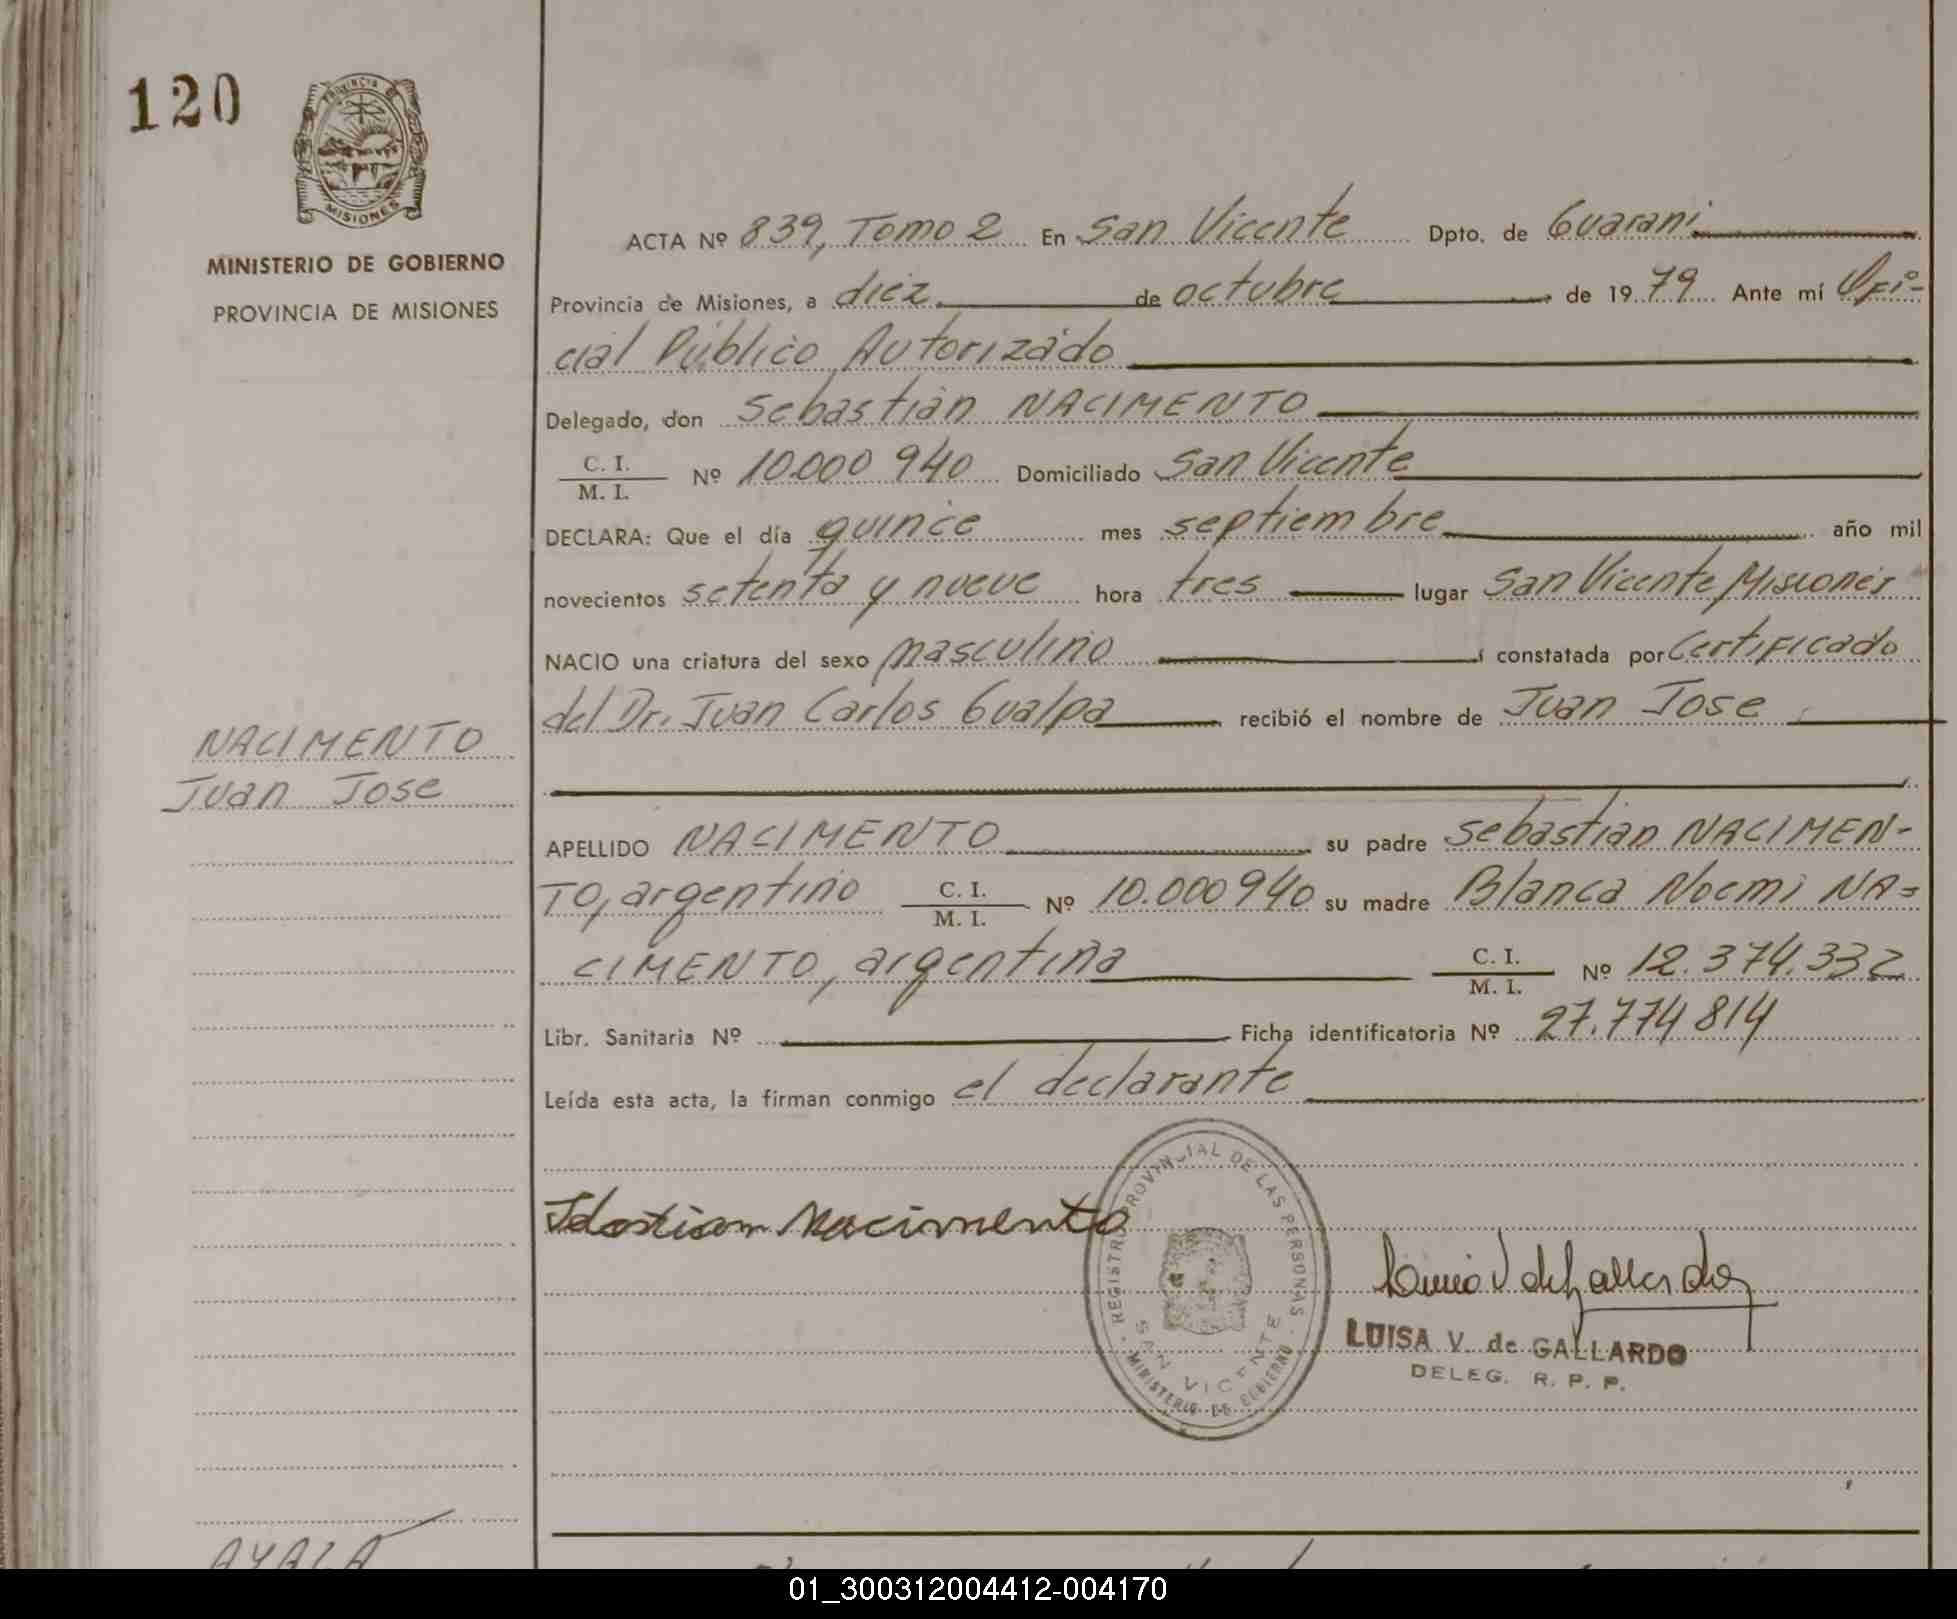 120
PROVINCIA DE
MISIONES
MINISTERIO DE GOBIERNO
PROVINCIA DE MISIONES
ACTA Nº 839, Tomo 2 En San Vicente Dpto. de Guarani
Provincia de Misiones, a diez de octubre de 1979 Ante mí Ofi-
cial Público Autorizado
Delegado, don Sebastián NACIMENTO
C. I.
M. I. Nº 10.000 940 Domiciliado San Vicente
DECLARA: Que el día quince mes septiembre año mil
novecientos setenta y nueve hora tres lugar San Vicente, Misiones
NACIO una criatura del sexo masculino constatada por Certificado
del Dr. Juan Carlos Gualpa recibió el nombre de Juan Jose
NACIMENTO
Juan Jose
APELLIDO NACIMENTO su padre Sebastian NACIMEN-
TO, argentino C. I.
M. I. Nº 10.000940 su madre Blanca Noemi NA=
CIMENTO, argentina C. I.
M. I. Nº 12.374.332
Libr. Sanitaria Nº Ficha identificatoria Nº 27.774814
Leída esta acta, la firman conmigo el declarante
REGISTRO PROVINCIAL DE LAS PERSONAS
SAN VICENTE
MINISTERIO DE GOBIERNO
Sebastiam Nacimento
Luisa V de Gallardo
LUISA V. de GALLARDO
DELEG. R. P. P.
AYALA
01_300312004412-004170